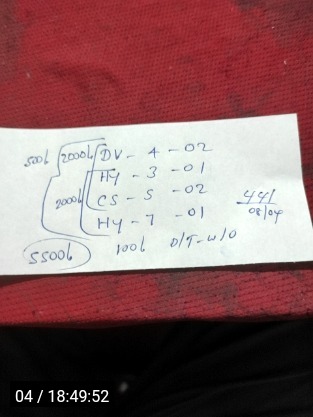 500l 2000l DV - 4 - 02
Hy - 3 - 01
2000l CS - 5 - 02
Hy - 7 - 01
441
08/04
5500l 100l D/T - W/O
04 / 18:49:52